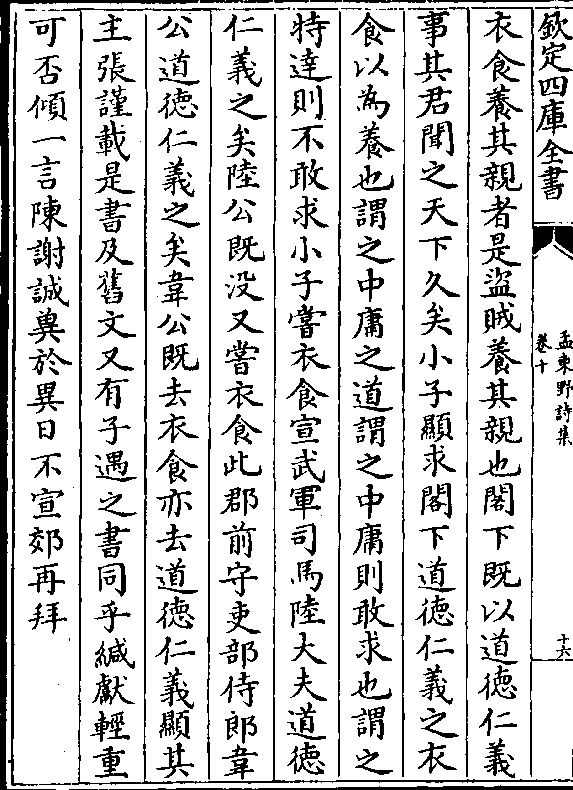 欽定四庫全書
孟東野詩集
卷十
十六
衣食養其親者是盜賊養其親也閣下既以道德仁義
事其君聞之天下久矣小子顯求閣下道德仁義之衣
食以為養也謂之中庸之道謂之中庸則敢求也謂之
特達則不敢求小子嘗衣食宣武軍司馬陸大夫道德
仁義之矣陸公既没又嘗衣食此郡前守吏部侍郎韋
公道德仁義之矣韋公既去衣食亦去道德仁義顯其
主張謹載是書及舊文又有子遇之書同乎緘獻輕重
可否傾一言陳謝誠㒷於異日不宣郊再拜